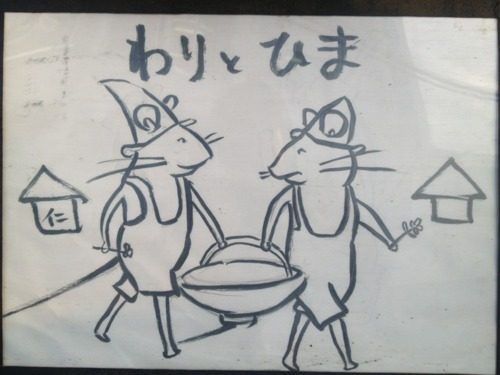 わりとひま
仁